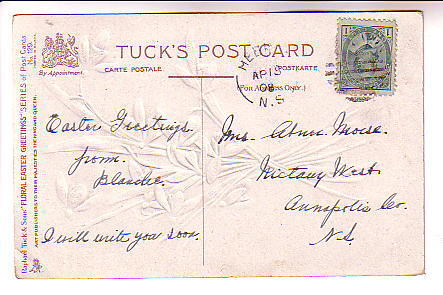 TUCK'S POST CARD
CARTE POSTALE
POSTKARTE
(FOR ADDRESS ONLY.)
By Appointment.
Raphael Tuck & Sons' "FLORAL EASTER GREETINGS" SERIES of Post Cards
No. 120.
ART PUBLISHERS TO THEIR MAJESTIES THE KING AND QUEEN.
AP 15
08
N.S
1
1
Easter Greetings
from.
Blanche.
I will write you soon.
Mrs. Abner Morse.
Nictaux West.
Annapolis Co.
N.S.